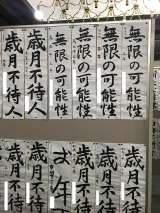 無限の可能性
無限の可能性
無限の可能性
無限の可能性
歳月不待人
歳月不待人
歳月不待
歳月不待
歳月不待
お年
歳月不待
歳月不待